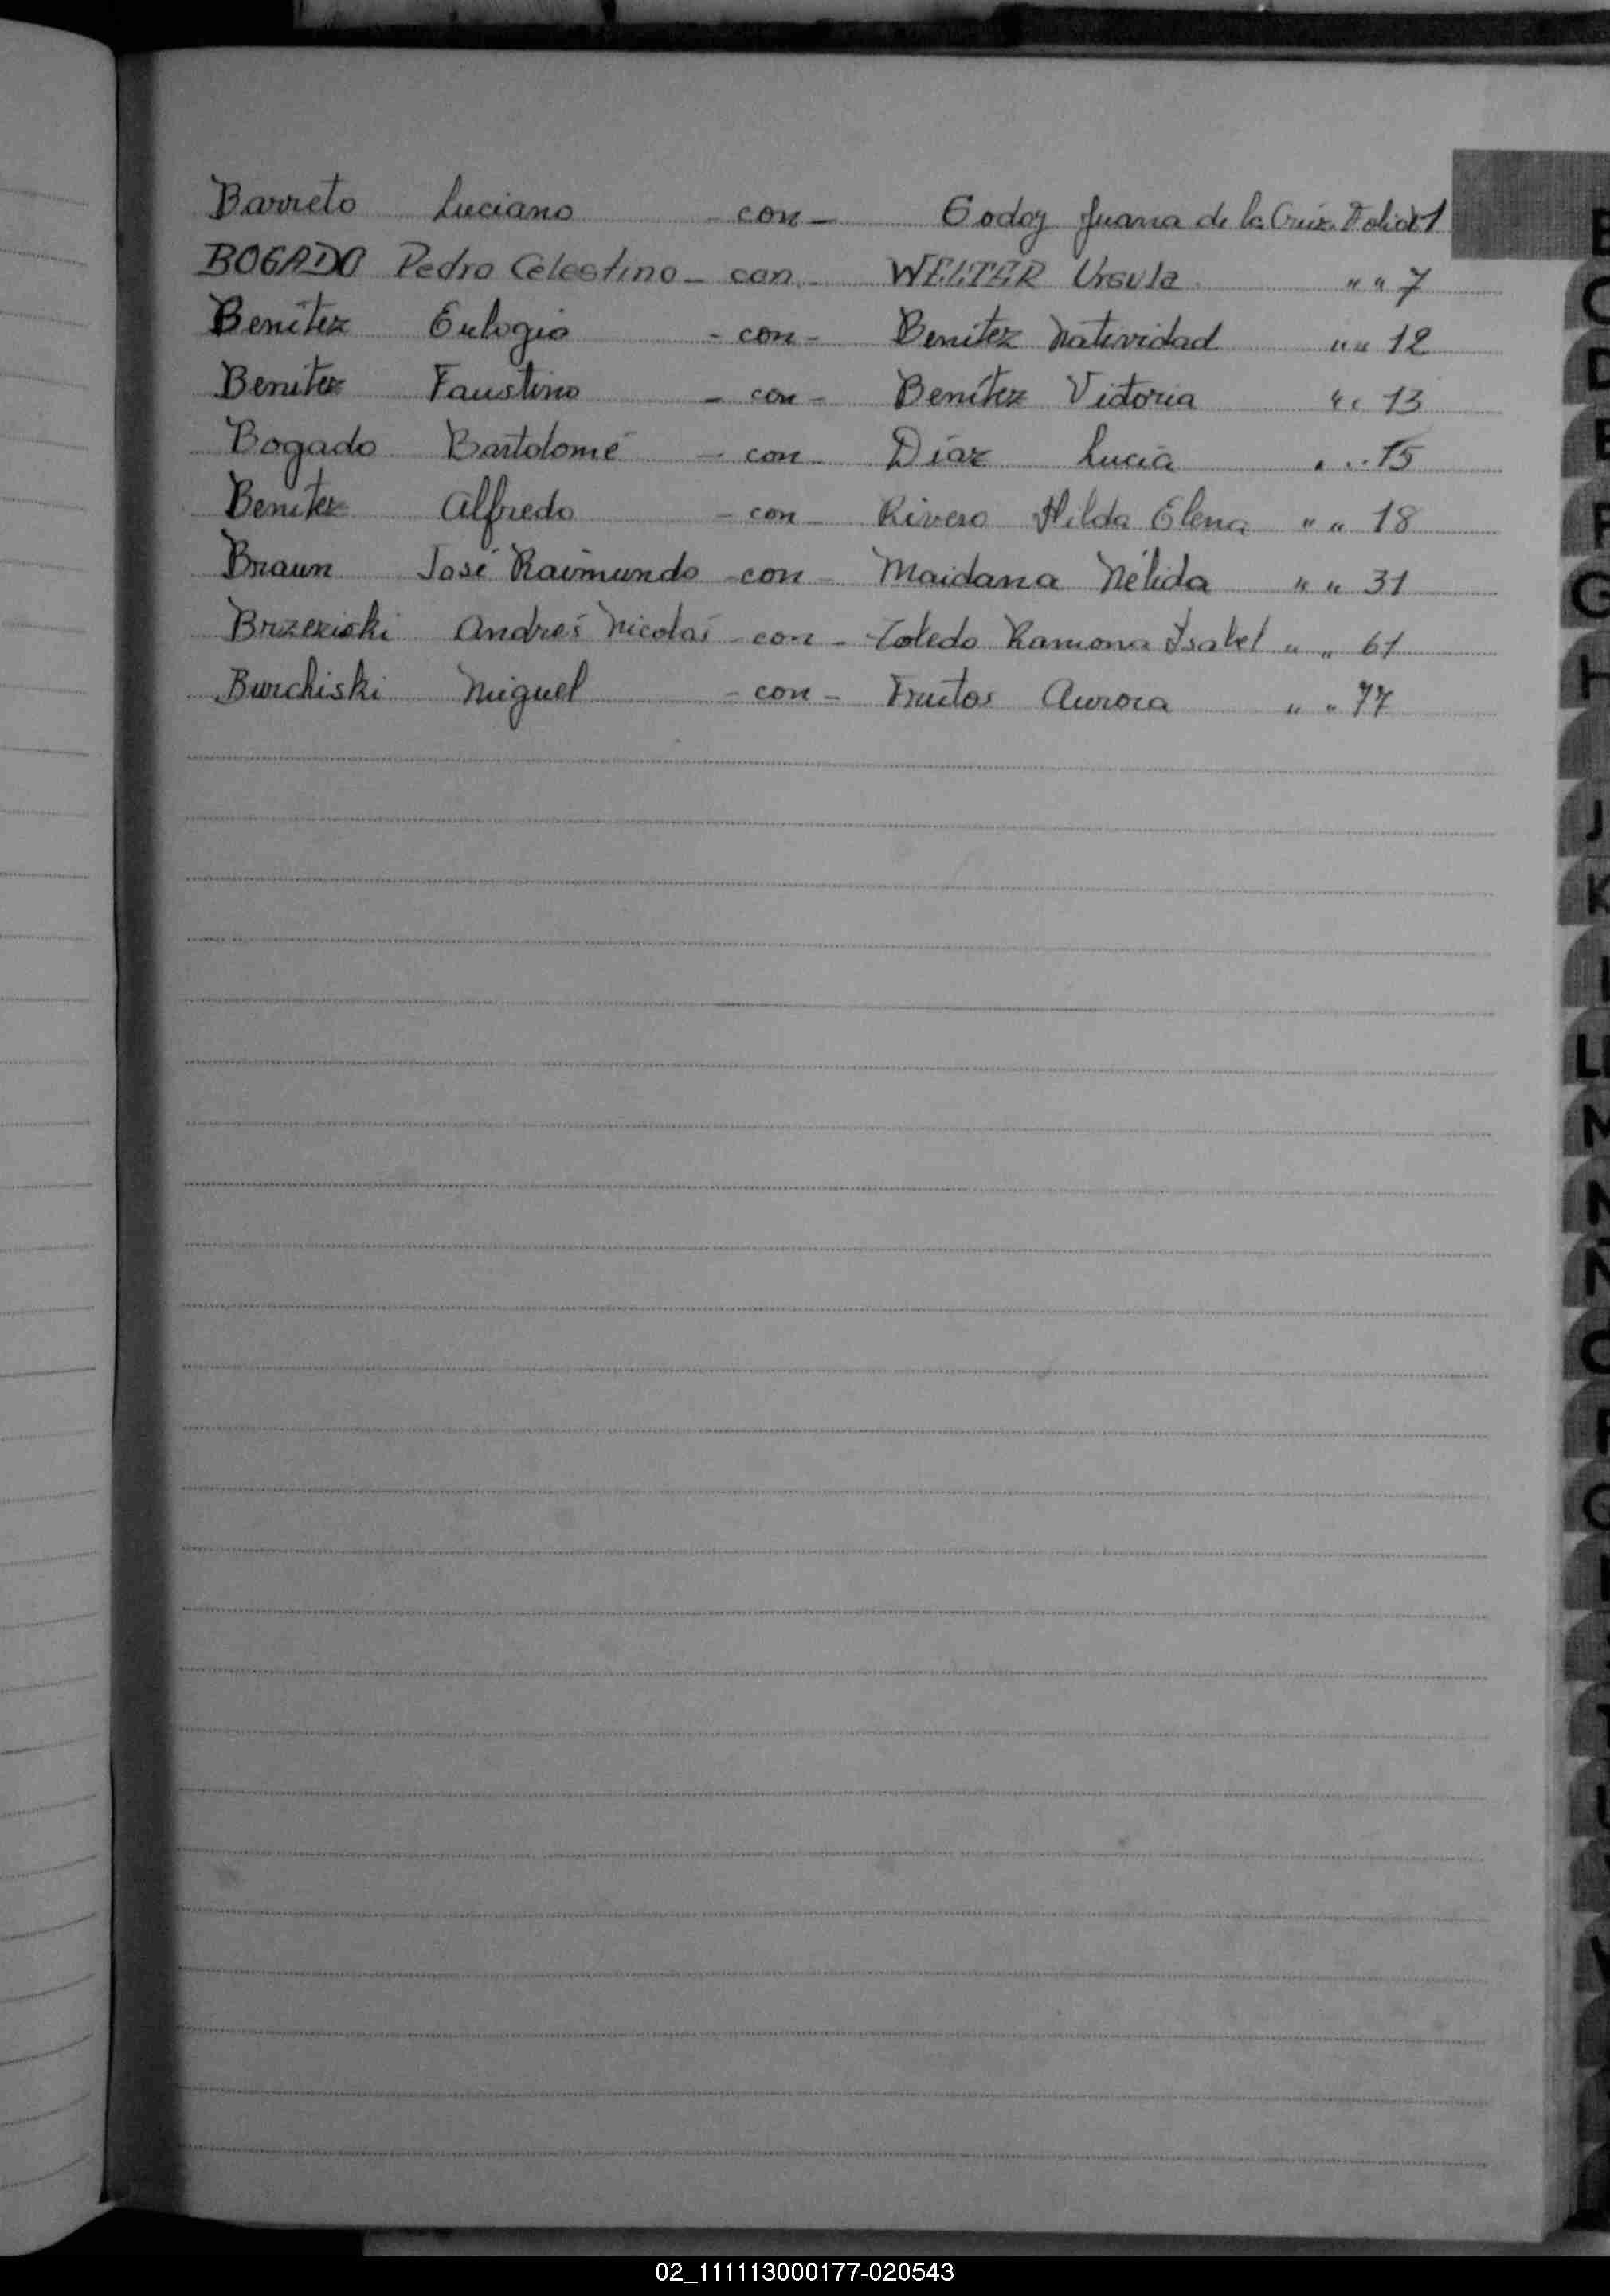 Barreto Luciano - con - Godoy Juana de la Cruz Folio 1
BOGADO Pedro Celestino - con - WELTER Ursula " " 7
Benítez Eulogio - con - Benítez Natividad " " 12
Benitez Faustino - con - Benítez Vitoria " " 13
Bogado Bartolomé - con - Díaz Lucía " " 15
Benitez Alfredo - con - Rivero Hilda Elena " " 18
Braun José Raimundo - con - Maidana Nélida " " 31
Brzeziski Andrés Nicolás - con - Toledo Ramona Isabel " " 61
Burchiski Miguel - con - Frutos Aurora " " 77
02_111113000177-020543